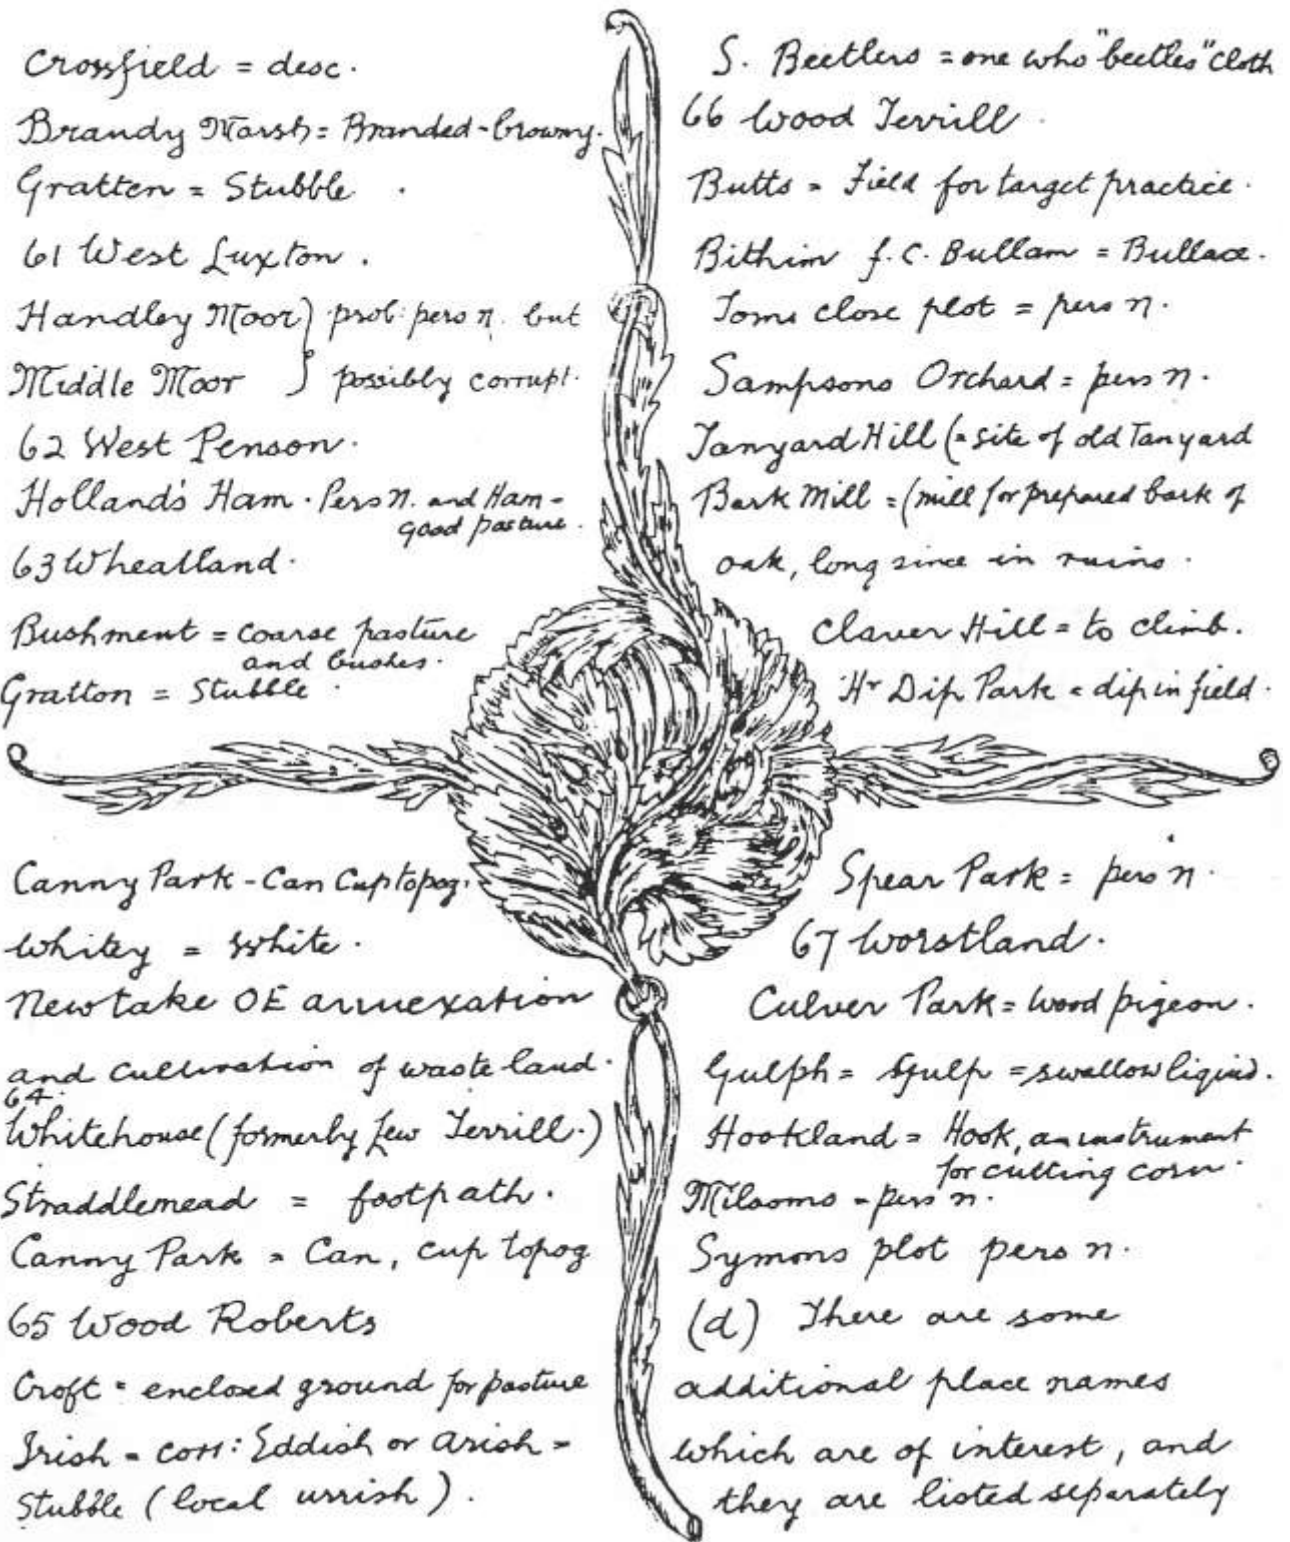 Crossfield = desc.
Brandy Marsh = Branded-browny.
Gratten = Stubble.
61 West Luxton.
Handley Moor } prob: pers n. but
Middle Moor } possibly corrupt.
62 West Penson.
Holland's Ham. Pers N. and Ham-
good pasture.
63 Wheatland.
Bushment = coarse pasture
and bushes.
Gratton = Stubble.
Canny Park - Can Cup topog.
Whitey = White.
Newtake OE annexation
and cultivation of waste land.
64.
Whitehouse (formerly Lew Terrill.)
Straddlemead = footpath.
Canny Park = Can, cup topog
65 Wood Roberts
Croft = enclosed ground for pasture
Irish = corr: Eddish or Arish =
Stubble (local urrish).
S. Beetlers = one who "beetles" cloth
66 Wood Terrill.
Butts = Field for target practice.
Bithim f.C. Bullam = Bullace.
Toms close plot = pers n.
Sampsons Orchard = pers n.
Tanyard Hill (= site of old Tanyard
Bark Mill = (mill for prepared bark of
oak, long since in ruins.
Claver Hill = to climb.
Hr Dip Park = dip in field.
Spear Park = pers n.
67 Worstland.
Culver Park = Wood pigeon.
Gulph = Gulp = swallow liqiud.
Hookland = Hook, an instrument
for cutting corn.
Milsoms = pers n.
Symons plot pers n.
(d) There are some
additional place names
which are of interest, and
they are listed separately